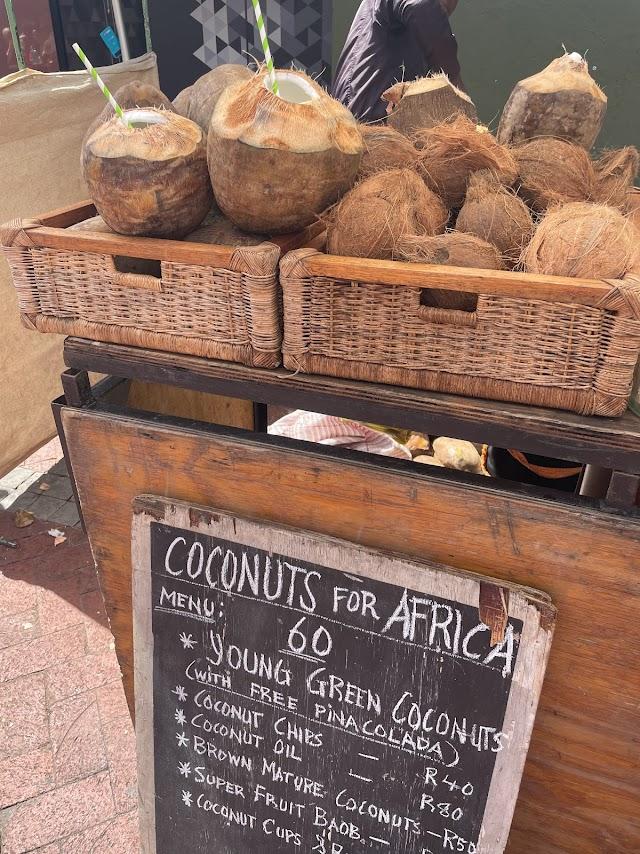 COCONUTS FOR AFRICA
MENU: 60
* YOUNG GREEN COCONUTS
(WITH FREE PINACOLADA)
* COCONUT CHIPS — R40
* COCONUT OIL — R80
* BROWN MATURE COCONUTS - R50
* SUPER FRUIT BAOB. —
* COCONUT CUPS